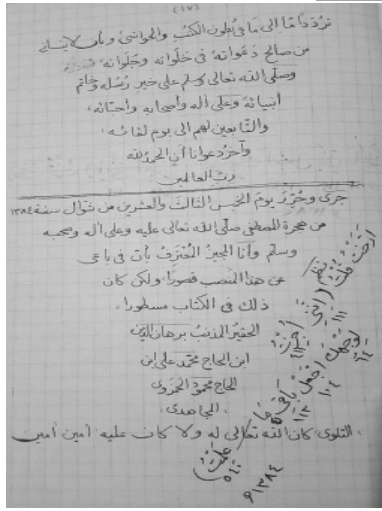 (١٧)
تردّد دائمًا إلى ما في بطون الكتب والحواشي وبأن لا ينساني
من صالح دعواته في خلواته وجلواته
وصلّى الله تعالى وسلم على خير رسله وخاتم
أنبيائه وعلى آله وأصحابه وأحبابه
والتابعين لهم إلى يوم لقائه
وآخر دعوانا أن الحمد لله
رب العالمين
جرى وحُرّر يوم الخميس الثالث والعشرين من شوال سنة ١٣٨٤
من هجرة المصطفى صلّى الله تعالى عليه وعلى آله وصحبه
وسلم وأنا المجيز المعترف بأن في باعي
عن هذا المنصب قصورًا ولكن كان
ذلك في الكتاب مسطورا
الحقير المذنب برهان الدين
ابن الحاج محمد علي ابن
الحاج محمود الحمزوي
المجاهدي
التلوى كان الله تعالى له ولا كان عليه آمين آمين
أرخت نظم
قلت
١١١
لوجهك اجعل باقي ما
٦٤ ١٠٤ ١١٣
علمت
٥٤٠
١٣٨٤